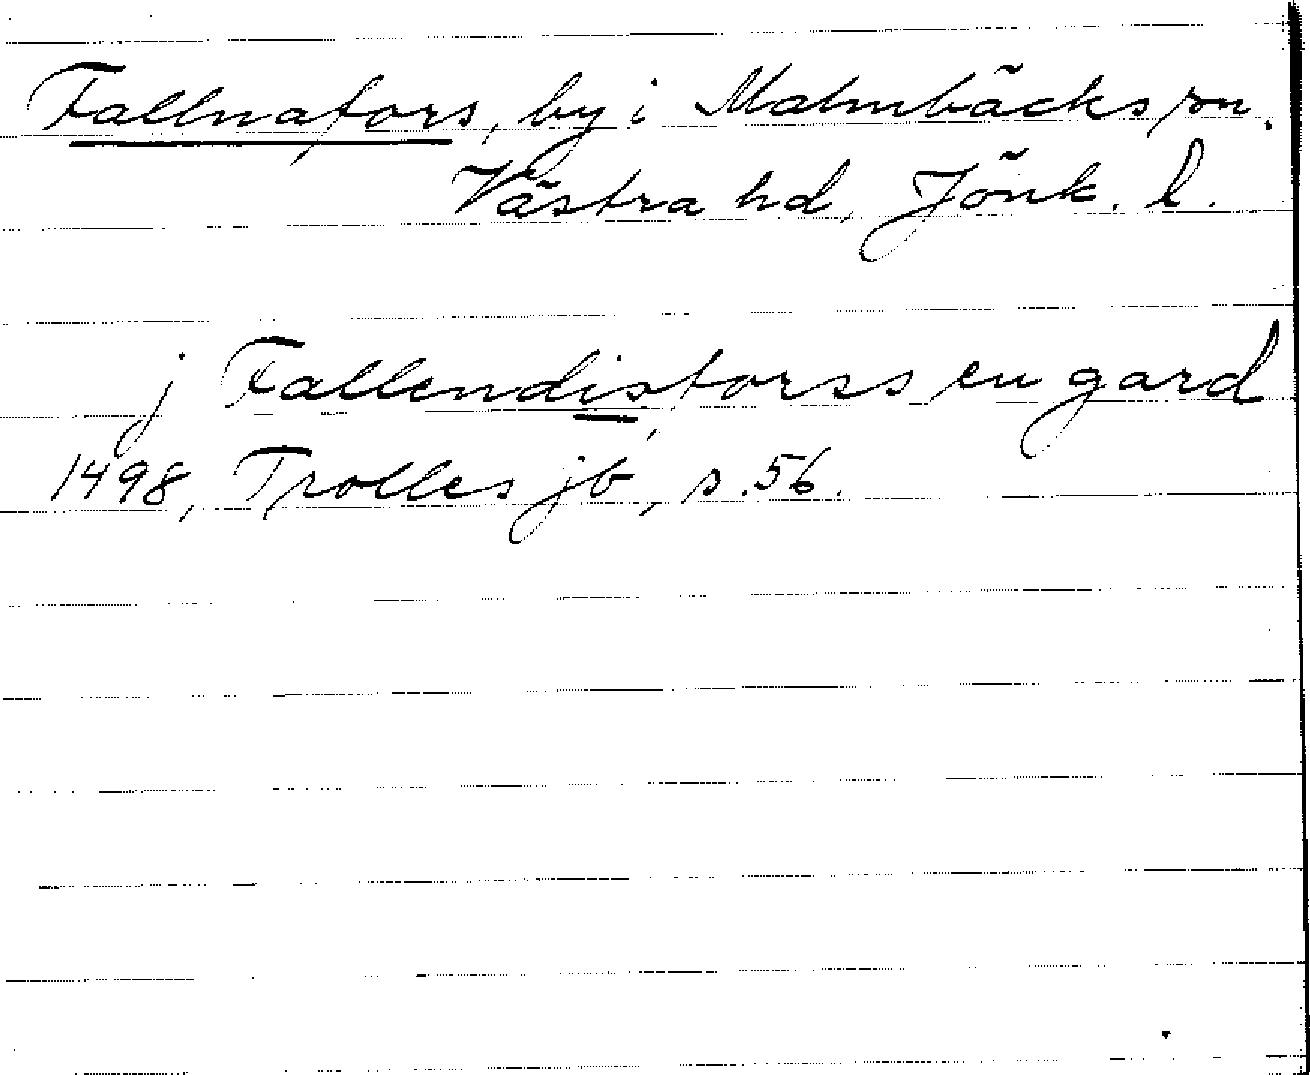 Fallnafors, by i Malmbäcks sn.
Västra hd, Jönk. l.
j Fallendisforss en gard
1498, Trolles jb, s. 56.